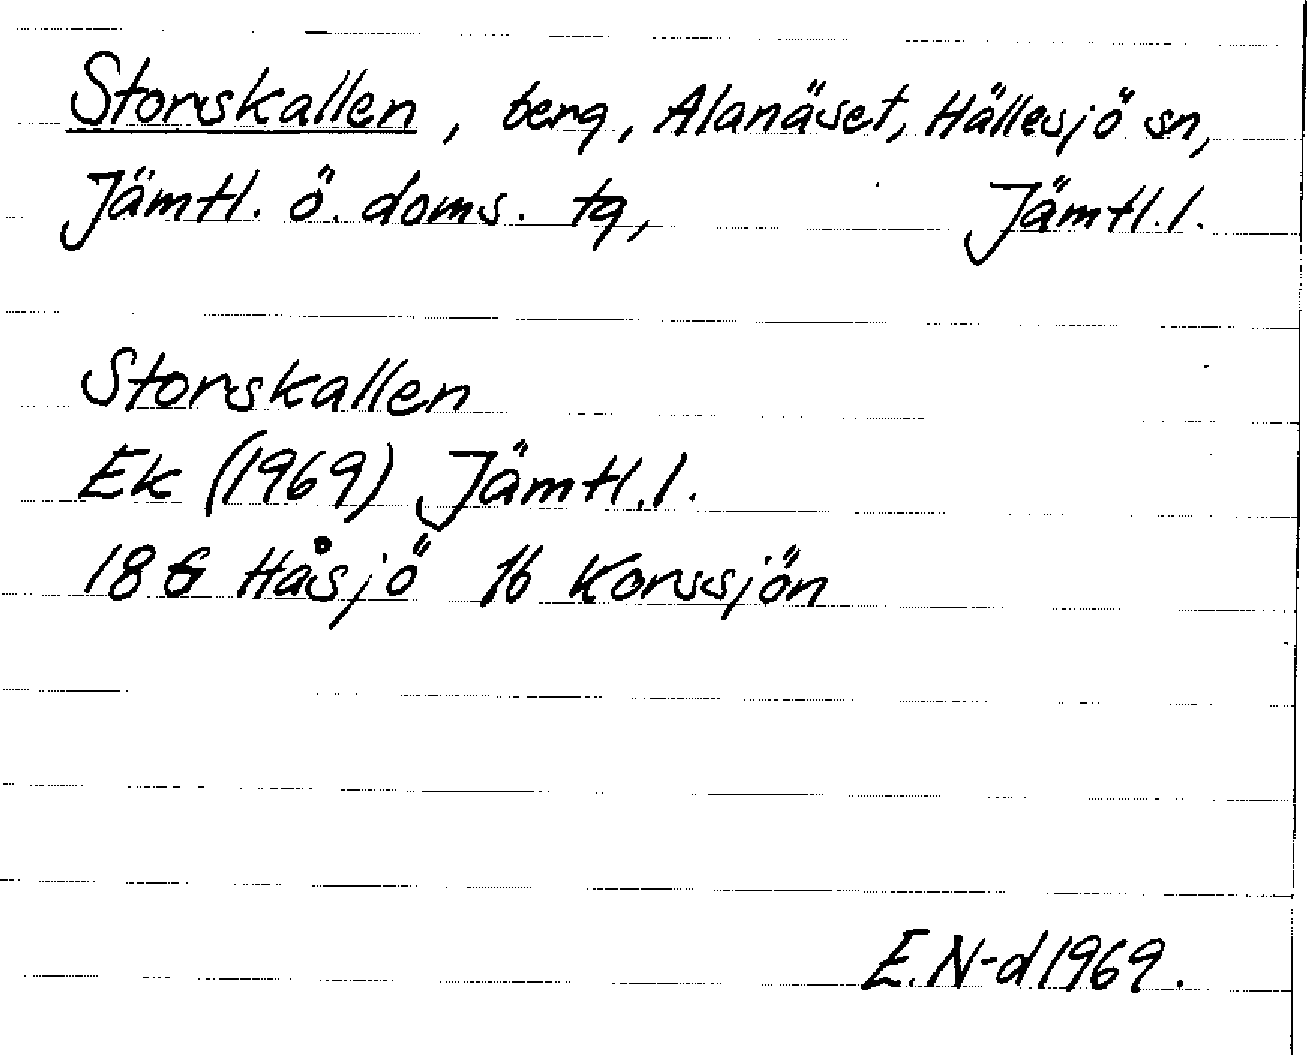 Storskallen, berg, Alanäset, Hällesjö sn,
Jämtl. ö. doms. tg, Jämtl.l.
Storskallen
Ek (1969) Jämtl.l.
18 G Håsjö 1b Korssjön
E.N-d 1969.